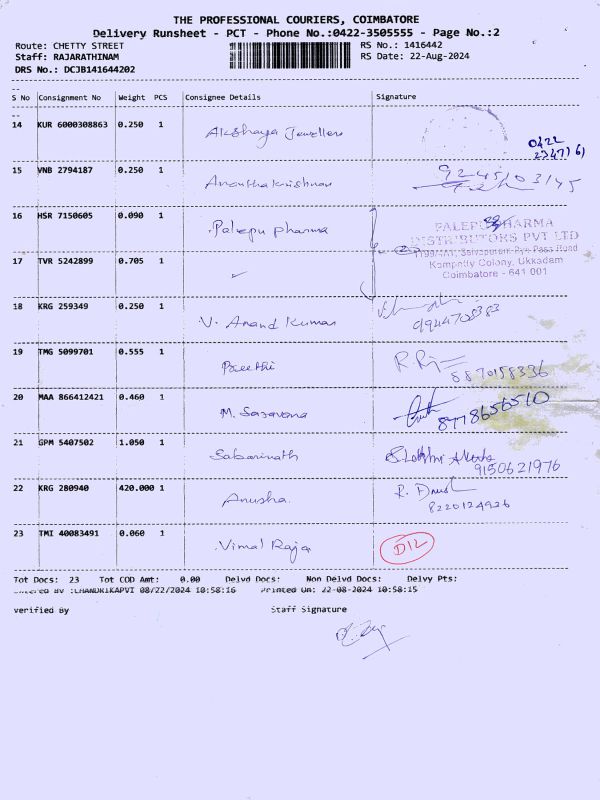 THE PROFESSIONAL COURIERS, COIMBATORE
Delivery Runsheet - PCT - Phone No.:0422-3505555 - Page No.:2
Route: CHETTY STREET RS No.: 1416442
Staff: RAJARATHINAM RS Date: 22-Aug-2024
DRS No.: DCJB141644202
S No Consignment No Weight PCS Consignee Details Signature
14 KUR 6000308863 0.250 1 Akshaya Jewellers 0422
15 VNB 2794187 0.250 1 Ananthakrishnan 9245103145
16 HSR 7150605 0.090 1 Palepu pharma PALEPU PHARMA
DISTRIBUTORS PVT LTD
17 TVR 5242899 0.705 1 ✓ Bye Pass Road
Kempatty Colony, Ukkadam
Coimbatore - 641 001
18 KRG 259349 0.250 1 V. Anand Kumar 9944708383
19 TMG 5099701 0.555 1 Preethi 8870158336
20 MAA 866412421 0.460 1 M. Saravana 8778656510
21 GPM 5407502 1.050 1 Sabarinath 9150621976
22 KRG 280940 420.000 1 Anusha. 8220124926
23 TMI 40083491 0.060 1 Vimal Raja D12
Tot Docs: 23 Tot COD Amt: 0.00 Delvd Docs: Non Delvd Docs: Delvy Pts:
Entered By :CHANDRIKAPVT 08/22/2024 10:58:16 Printed On: 22-08-2024 10:58:15
verified By Staff Signature